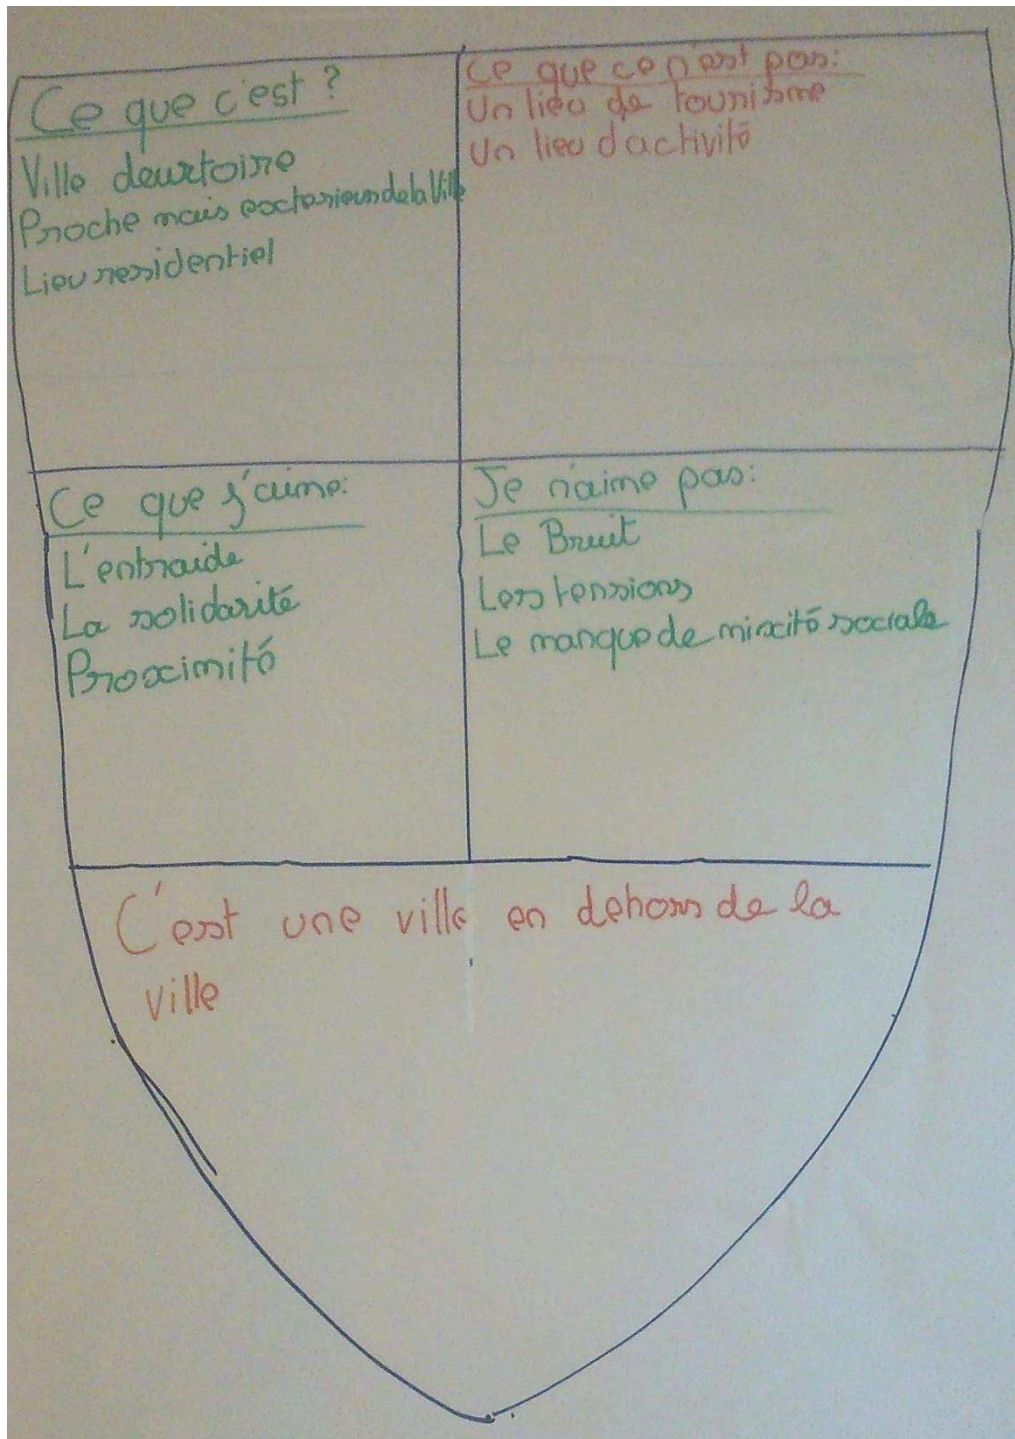 Ce que c'est ?
Ville deurtoire
Proche mais exterieur de la Ville
Lieu residentiel
Ce que ce n'est pas:
Un lieu de tourisme
Un lieu d'activité
Ce que j'aime:
L'entraide
La solidarité
Proximité
Je n'aime pas:
Le Bruit
Les tensions
Le manque de mixité sociale
C'est une ville en dehors de la
ville